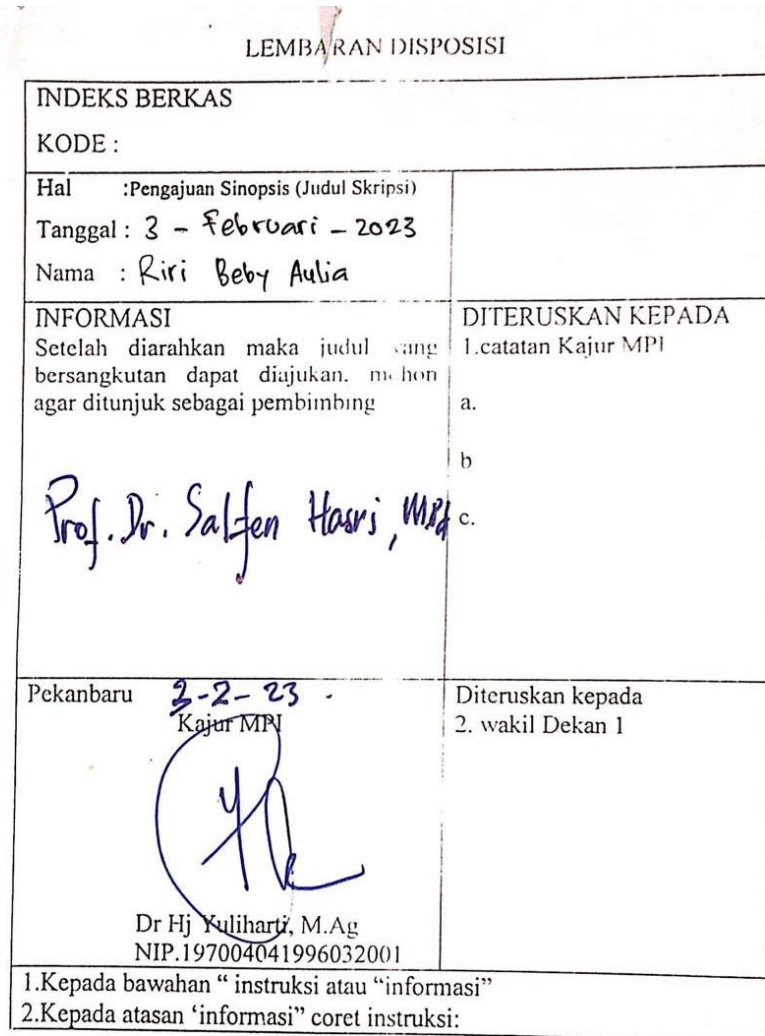 LEMBARAN DISPOSISI
INDEKS BERKAS
KODE :
Hal :Pengajuan Sinopsis (Judul Skripsi)
Tanggal : 3 - Februari - 2023
Nama : Riri Beby Aulia
INFORMASI
Setelah diarahkan maka judul yang
bersangkutan dapat diajukan. mohon
agar ditunjuk sebagai pembimbing
Prof. Dr. Salfen Hasri, MPd
DITERUSKAN KEPADA
1.catatan Kajur MPI
a.
b
c.
Pekanbaru 3-2-23 .
Kajur MPI
Dr Hj Yuliharti, M.Ag
NIP.197004041996032001
Diteruskan kepada
2. wakil Dekan 1
1.Kepada bawahan “ instruksi atau “informasi”
2.Kepada atasan ‘informasi” coret instruksi: